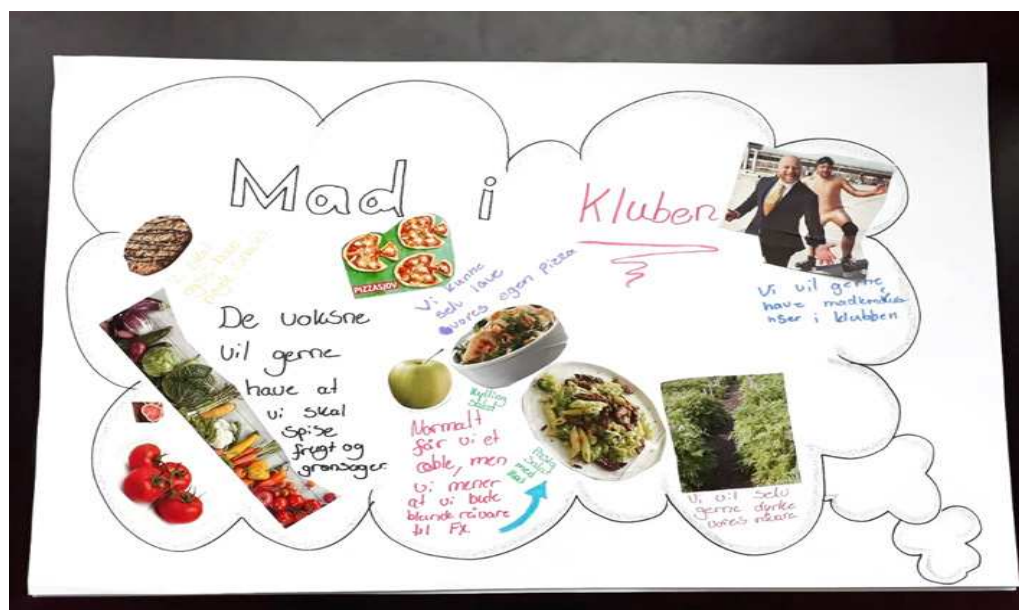 Mad i Kluben
PIZZASJOV
Vi kunne
selv lave
vores egen pizza
Vi vil gerne
have
nser i klubben
De voksne
vil gerne
have at
vi skal
spise
frugt og
grønsager
Kylling
Salat
Normalt
får vi et
æble, men
vi mener
at vi
blande råvare
til Fx
Salat
med
Vi vil selv
gerne dyrke
vores råvare